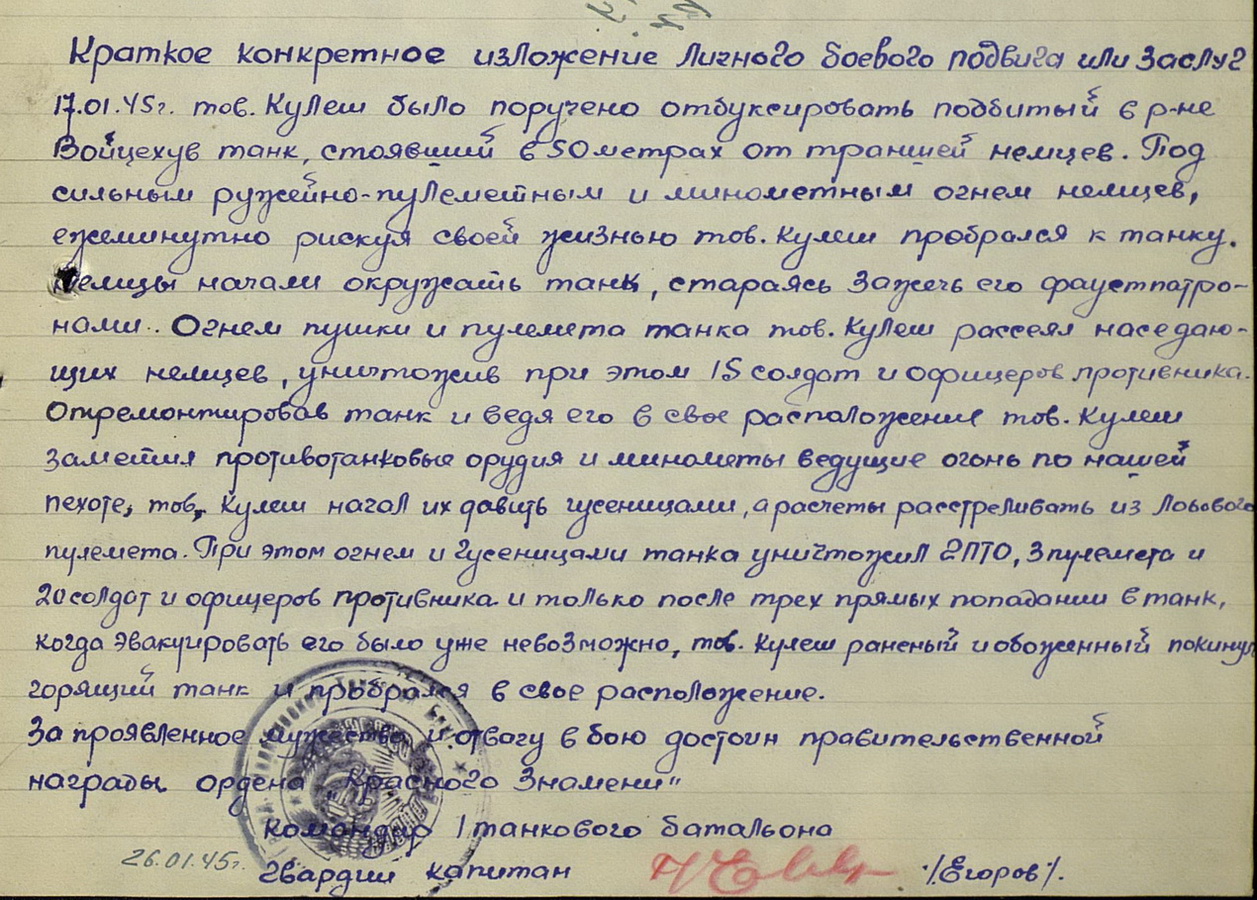 Краткое конкретное изложение личного боевого подвига или заслуг
17.01.45г. тов. Кулеш было поручено отбуксировать подбитый в р-не
Войцехув танк, стоявший в 50 метрах от траншей немцев. Под
сильным ружейно-пулеметным и минометным огнем немцев,
ежеминутно рискуя своей жизнью тов. Кулеш пробрался к танку.
Немцы начали окружать танк, стараясь зажечь его фаустпатро-
нами. Огнем пушки и пулемета танка тов. Кулеш рассеял наседаю-
щих немцев, уничтожив при этом 15 солдат и офицеров противника.
Отремонтировав танк и ведя его в свое расположение тов. Кулеш
заметил противотанковые орудия и минометы ведущие огонь по нашей
пехоте, тов. Кулеш начал их давить гусеницами, а расчеты расстреливать из лобового
пулемета. При этом огнем и гусеницами танка уничтожил 2 ПТО, 3 пулемета и
20 солдат и офицеров противника и только после трех прямых попадании в танк,
когда эвакуировать его было уже невозможно, тов. Кулеш раненый и обоженный покинул
горящий танк и пробрался в свое расположение.
За проявленное мужество и отвагу в бою достоин правительственной
награды ордена "Красного Знамени"
Командир 1 танкового батальона
26.01.45г. гвардии капитан /Егоров/.